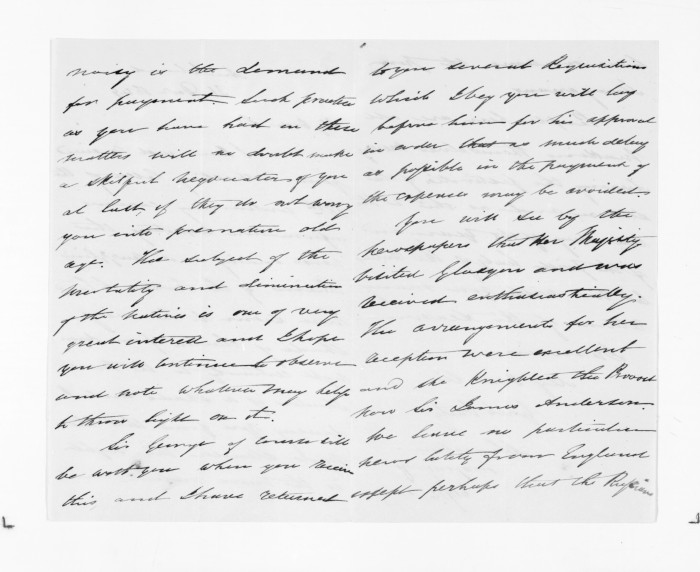 noisy is the demand
for payment. Such practice
as you have had in these
matters will no doubt make
a skilful negociator of you
at last, if they do not worry
you into premature old
age. The subject of the
mortality and diminution
of the natives is one of very
great interest and I hope
you will continue to observe
and note whatever may help
to throw light on it.
Sir George of course will
be with you when you receive
this and I have returned
to you several Requisitions
which I beg you will lay
before him for his approval
in order that as much delay
as possible in the payment of
the expenses may be avoided.
You will see by the
Newspapers that Her Majesty
visited Glasgow and was
received enthusiastically.
The arrangements for her
reception were excellent
and she Knighted the Provost
now Sir James Anderson.
We have no particular
news lately from England
except perhaps that the